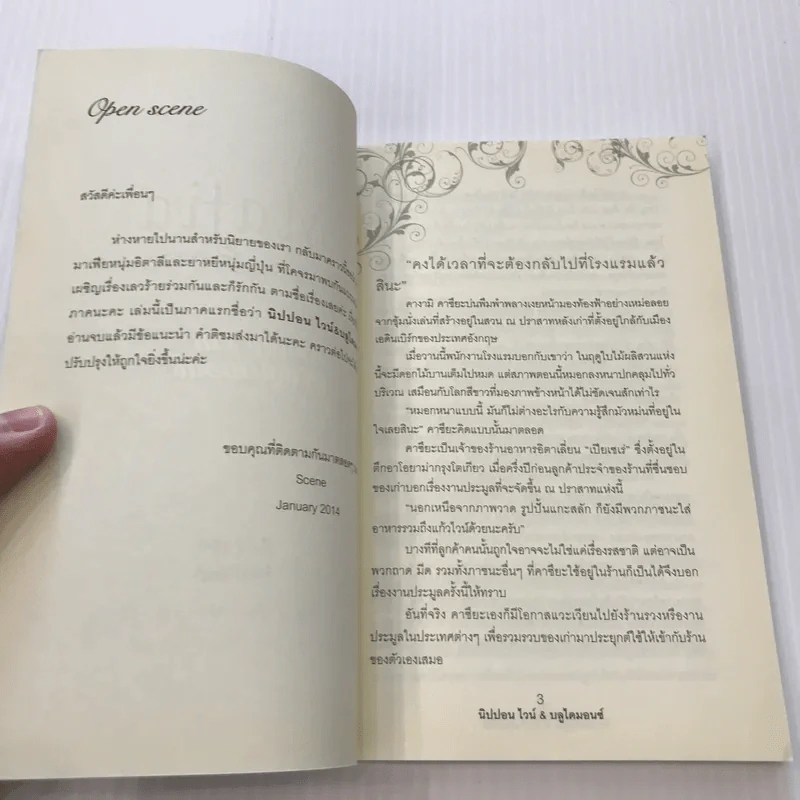 Open scene
สวัสดีค่ะเพื่อนๆ
ห่างหายไปนานสำหรับนิยายของเรา กลับมาคราวนี้
มาเฟียหนุ่มอิตาลีและยาหยีหนุ่มญี่ปุ่น ที่โคจรมาพบกัน
เผชิญเรื่องเลวร้ายร่วมกันและก็รักกัน ตามชื่อเรื่องเลยค่ะ
ภาคนะคะ เล่มนี้เป็นภาคแรกชื่อว่า นิปปอน ไวน์&บลู
อ่านจบแล้วมีข้อแนะนำ คำติชมส่งมาได้นะคะ คราวต่อไป
ปรับปรุงให้ถูกใจยิ่งขึ้นน่ะค่ะ
ขอบคุณที่ติดตามกันมาตลอดๆ
Scene
January 2014
“คงได้เวลาที่จะต้องกลับไปที่โรงแรมแล้ว
สินะ”
คางามิ คาซึยะบ่นพึมพำพลางเงยหน้ามองท้องฟ้าอย่างเหม่อลอย
จากซุ้มนั่งเล่นที่สร้างอยู่ในสวน ณ ปราสาทหลังเก่าที่ตั้งอยู่ใกล้กับเมือง
เอดินเบิร์กของประเทศอังกฤษ
เมื่อวานนี้พนักงานโรงแรมบอกกับเขาว่า ในฤดูใบไม้ผลิสวนแห่ง
นี้จะมีดอกไม้บานเต็มไปหมด แต่สภาพตอนนี้หมอกลงหนาปกคลุมไปทั่ว
บริเวณ เสมือนกับโลกสีขาวที่มองภาพข้างหน้าได้ไม่ชัดเจนสักเท่าไร
“หมอกหนาแบบนี้ มันก็ไม่ต่างอะไรกับความรู้สึกมัวหม่นที่อยู่ใน
ใจเลยสินะ” คาซึยะคิดแบบนั้นมาตลอด
คาซึยะเป็นเจ้าของร้านอาหารอิตาเลี่ยน “เปียเซเร่” ซึ่งตั้งอยู่ใน
ตึกอาโอยาม่ากรุงโตเกียว เมื่อครึ่งปีก่อนลูกค้าประจำของร้านที่ชื่นชอบ
ของเก่าบอกเรื่องงานประมูลที่จะจัดขึ้น ณ ปราสาทแห่งนี้
“นอกเหนือจากภาพวาด รูปปั้นแกะสลัก ก็ยังมีพวกภาชนะใส่
อาหารรวมถึงแก้วไวน์ด้วยนะครับ”
บางทีที่ลูกค้าคนนั้นถูกใจอาจจะไม่ใช่แค่เรื่องรสชาติ แต่อาจเป็น
พวกถาด มีด รวมทั้งภาชนะอื่นๆ ที่คาซึยะใช้อยู่ในร้านก็เป็นได้จึงบอก
เรื่องงานประมูลครั้งนี้ให้ทราบ
อันที่จริง คาซึยะเองก็มีโอกาสแวะเวียนไปยังร้านรวงหรืองาน
ประมูลในประเทศต่างๆ เพื่อรวมรวบของเก่ามาประยุกต์ใช้ให้เข้ากับร้าน
ของตัวเองเสมอ
3
นิปปอน ไวน์ & บลูไดมอนซ์